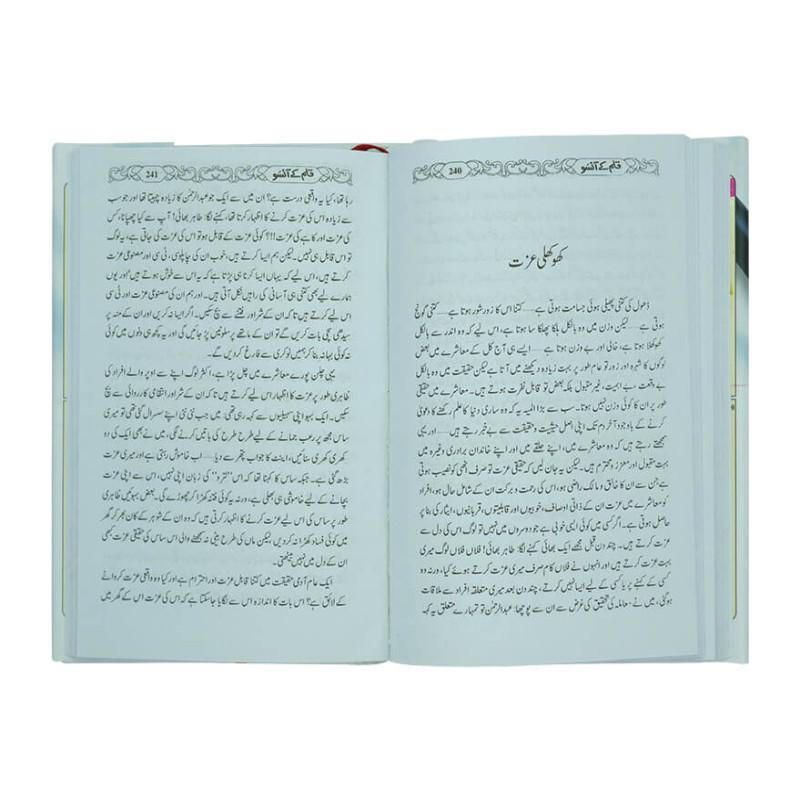 قلم کے آنسو
240
کھوکھلی عزت
ڈھول کی کتنی پھیلی ہوئی جسامت ہوتی ہے.....کتنا اس کا زور شور ہوتا ہے.....کتنی گونج
ہوتی ہے.....لیکن وزن میں وہ بالکل ہلکا پھلکا سا ہوتا ہے، اس لیے کہ وہ اندر سے بالکل
کھوکھلا ہوتا ہے، خالی اور بے وزن ہوتا ہے.....ایسے ہی آج کل کے معاشرے میں بعض
لوگوں کا شہرہ اور زور تو عام طور پر بہت زیادہ دیکھنے میں آتا ہے لیکن حقیقت میں وہ بالکل
بے وقعت، بے اہمیت، غیر مقبول بلکہ بعض تو قابل نفرت ہوتے ہیں۔ معاشرے میں حقیقی
طور پر ان کا کوئی وزن نہیں ہوتا۔ سب سے بڑا المیہ یہ کہ وہ ساری دنیا کا علم رکھنے کا دعویٰ
کرنے کے باوجود آخر دم تک اپنی اصل حیثیت و حقیقت سے بے خبر رہتے ہیں.....اور یہی
سمجھتے رہتے ہیں کہ وہ معاشرے میں، اپنے حلقے میں اور اپنے خاندان برادری وغیرہ میں
بہت مقبول اور معزز و محترم ہیں۔ لیکن یہ جان لیں کہ حقیقی عزت تو صرف انھی کو نصیب ہوتی
ہے جن سے ان کا خالق و مالک راضی ہو، اس کی رحمت و برکت ان کے شامل حال ہو، افراد
کو معاشرے میں عزت ان کے ذاتی اوصاف، خوبیوں اور قابلیتوں، قربانیوں، ایثار کی بنا پر
حاصل ہوتی ہے۔ اگر کسی میں کوئی ایسی خوبی ہے جو دوسروں میں نہیں تو لوگ اس کی دل سے
عزت کرتے ہیں۔ چند دن قبل مجھے ایک بھائی کہنے لگا: طاہر بھائی! فلاں فلاں لوگ میری
بہت عزت کرتے ہیں اور انہوں نے فلاں کام صرف میری عزت کرتے ہوئے کیا، ورنہ وہ
کسی کے کہنے پر یا کسی کے لیے ایسا نہیں کرتے، چند دن بعد میری متعلقہ افراد سے ملاقات
ہو گئی، میں نے معاملہ کی تحقیق کی غرض سے ان سے پوچھا: عبدالرحمٰن تو تمہارے متعلق یہ کہہ
قلم کے آنسو
241
رہا تھا، کیا یہ واقعی درست ہے؟ ان میں سے ایک جو عبدالرحمٰن کا زیادہ چہیتا تھا اور جو سب
سے زیادہ اس کی عزت کرنے کا اظہار کرتا تھا، کہنے لگا: طاہر بھائی! آپ سے کیا چھپانا، کس
کی عزت اور کاہے کی عزت!!!؟ کوئی عزت کے قابل ہو تو اس کی عزت کی جاتی ہے، یہ لوگ
تو اس قابل ہی نہیں۔ لیکن ہم ایسا کرتے ہیں، خوب ان کی چاپلوسی، ٹی سی اور مصنوعی عزت
کرتے ہیں، اس لیے کہ یہاں ایسا کرنا ہی پڑتا ہے کہ یہ اس سے خوش ہوتے ہیں اور یوں
ہمارے لیے بھی کتنی ہی آسانی کی راہیں نکل آتی ہیں۔ اور ہم ان کی مصنوعی عزت اور ٹی سی
اس لیے کرتے ہیں تا کہ ان کے شر اور فتنے سے بچ سکیں۔ اگر ایسا نہ کریں اور ان کے منہ پر
سیدھی سچی بات کریں گے تو ان کے ماتھے پر سلوٹیں پڑ جائیں گی اور یہ کچھ ہی دنوں میں کوئی
نہ کوئی بہانہ بنا کر ہمیں نوکری سے فارغ کر دیں گے۔
یہی چلن پورے معاشرے میں چل پڑا ہے، اکثر لوگ اپنے سے اوپر والے افراد کی
ظاہری طور پر عزت کا اظہار اس لیے کرتے ہیں تا کہ ان کے شر اور انتقامی کارروائی سے بچ
سکیں۔ ایک بہو اپنی سہیلیوں سے کہہ رہی تھی: میں جب نئی نئی اپنے سسرال گئی تھی تو میری
ساس مجھ پر رعب جمانے کے لیے طرح طرح کی باتیں کرنے لگی، میں نے بھی ایک کی دو
کھری کھری سنائیں، اینٹ کا جواب پتھر سے دیا.....اب خاموش رہتی ہے اور میری عزت
بڑھ گئی ہے۔ جبکہ ساس کا کہنا تھا کہ اس ”لترو“ کی زبان اپنی نہیں، اس سے اپنی عزت
بچانے کے لیے خاموشی ہی بھلی ہے، ورنہ یہ کوئی فتنہ کھڑا کر چھوڑے گی۔ بعض بہوئیں ظاہری
طور پر ساس کی اس لیے عزت کرنے کا اظہار کرتی ہیں کہ وہ ان کے شوہر کے کان بھر کر گھر
میں کوئی فساد کھڑا نہ کر دیں لیکن ماں کی طرح بیٹی نہ سمجھنے والی اس ساس کی حقیقی عزت کبھی
ان کے دل میں نہیں بیٹھتی۔
ایک عام آدمی حقیقت میں کتنا قابل عزت اور احترام ہے اور کیا وہ واقعی عزت کروانے
کے لائق ہے؟ اس بات کا اندازہ اس سے لگایا جا سکتا ہے کہ اس کی عزت اس کے گھر میں